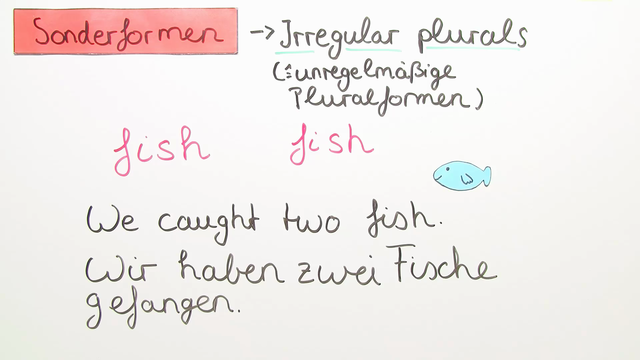 Sonderformen → Irregular plurals
(≙ unregelmäßige
Pluralformen)
fish fish
We caught two fish.
Wir haben zwei Fische
gefangen.